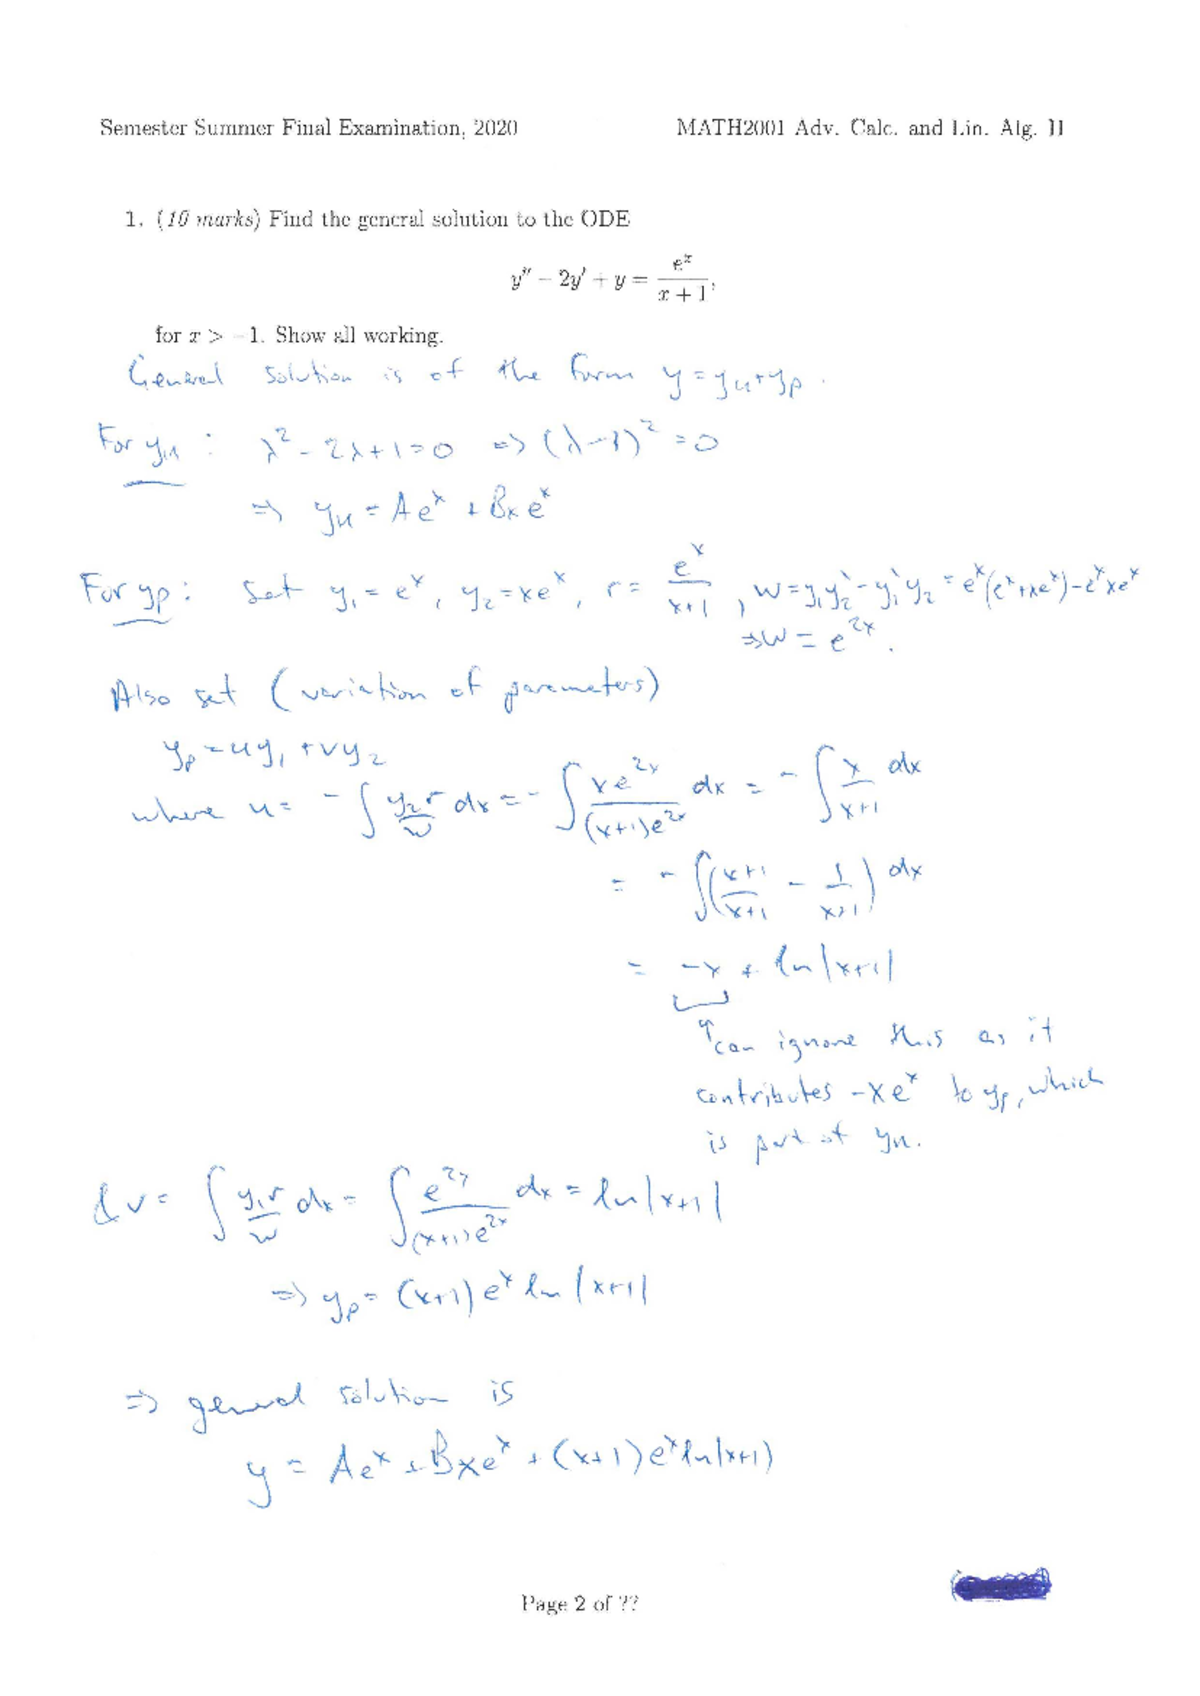 Semester Summer Final Examination, 2020 MATH2001 Adv. Calc. and Lin. Alg. II
1. (10 marks) Find the general solution to the ODE
y'' − 2y' + y = e^x/(x + 1),
for x > −1. Show all working.
General solution is of the form y = y_H + y_P.
For y_H : λ² − 2λ + 1 = 0 ⇒ (λ − 1)² = 0
⇒ y_H = Ae^x + Bxe^x
For y_P : Set y₁ = e^x, y₂ = xe^x, r = e^x/(x+1), W = y₁y₂' − y₁'y₂ = e^x(e^x + xe^x) − e^x xe^x
⇒ W = e^{2x}.
Also set (variation of parameters)
y_P = uy₁ + vy₂
where u = −∫ y₂r/W dx = −∫ xe^{2x}/((x+1)e^{2x}) dx = −∫ x/(x+1) dx
= −∫((x+1)/(x+1) − 1/(x+1)) dx
= −x + ln|x+1|
↑ can ignore this as it
contributes −xe^x to y_P, which
is part of y_H.
& v = ∫ y₁r/W dx = ∫ e^{2x}/((x+1)e^{2x}) dx = ln|x+1|
⇒ y_P = (x+1)e^x ln|x+1|
⇒ general solution is
y = Ae^x + Bxe^x + (x+1)e^x ln|x+1|
Page 2 of ??